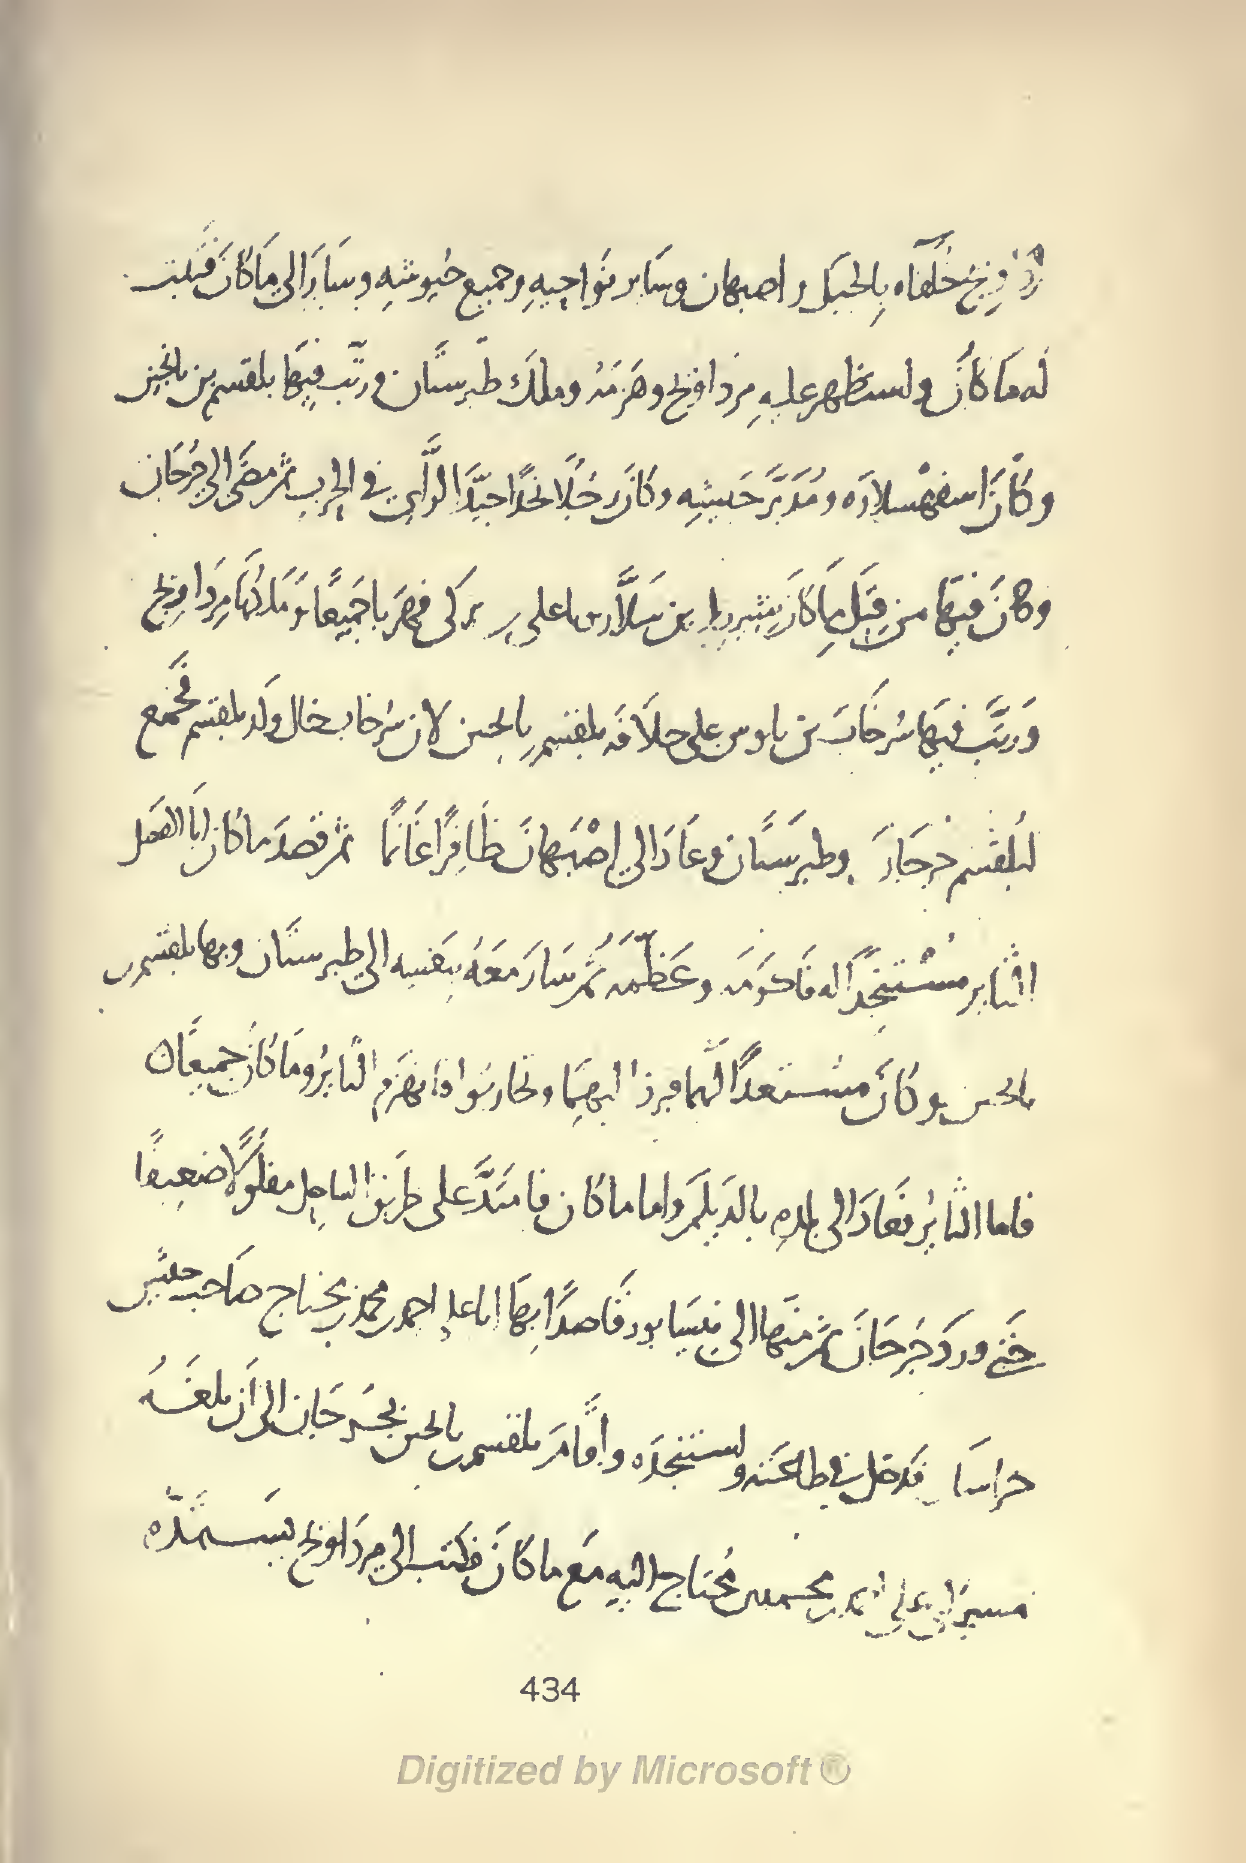 خلفاه بالجبل واصبهان وسَاير نَوَاحِيهِ وجميع جُيوشِهِ وسَارَ الي مَاكانَ فثبت
له مَا كانَ ولستظهر عليهِ مردَاويج وهَزمَهُ وملَك طبرستَان ورتَّب فيهَا بلقسم بن بانجين
وكانَ اسفهْسلارَه ومُدَبِّرَ جَيشِهِ وكانَ رجُلًا نجْدًا جيّدَا الرَّأي في الحرب ثم مضَى الي جُرجَان
وكانَ فيهَا من قِبَل مَاكانَ بن سَلَّار على بن تركى فهَرَبا جَميعًا وَمَلكَهَا مِردَاويج
وَرتَّبَ فيهَا سُرخَابَ بن باوس على خلَافَه بلقسم بن بالحسن لان سُرخاب خال ولَد بلقسم فجَمع
لبلقسم جرجَانَ وطبرسَتان وعَادَ الي إصْبَهانَ ظَافِرًا غَانمًا ثمر قصدَ ماكان ابَا الفضل
الثاير مُسْتنجِدًا له فاكرَمَه وعَظَّمَه ثمر سَارَ مَعَهُ بنَفسِه الي طبرستَان وبها بلقسم بن
بالحسن وكانَ مستعدًا لَّهما فبرز اليهمَا وتحاربُوا فانهزم الثايرُ ومَا كانَ جميعًا
فاما الثايرُ فعَادَ الى بلدِهِ بالديلَم واما ماكان فامتَدَّ على طَريق الساحِل مفلُولًا ضعِيفًا
حَتي ورَدَ جُرجَانَ ثم منهَا الي نيسَابور قَاصدًا بهَا ابا على احمد بن محمد بن محتاج صَاحب جيش
خراسَان فدخل في طاعَته ولستنجدَه وأقَامَ بلقسم بن بالحسن بجُرجَان الي أن بلغَهُ
مسير ابي علي احمد بن محمد بن مُحتاج اليهِ مَع ما كانَ فكتب الي مردَاويج يستمدّه
434
Digitized by Microsoft ®